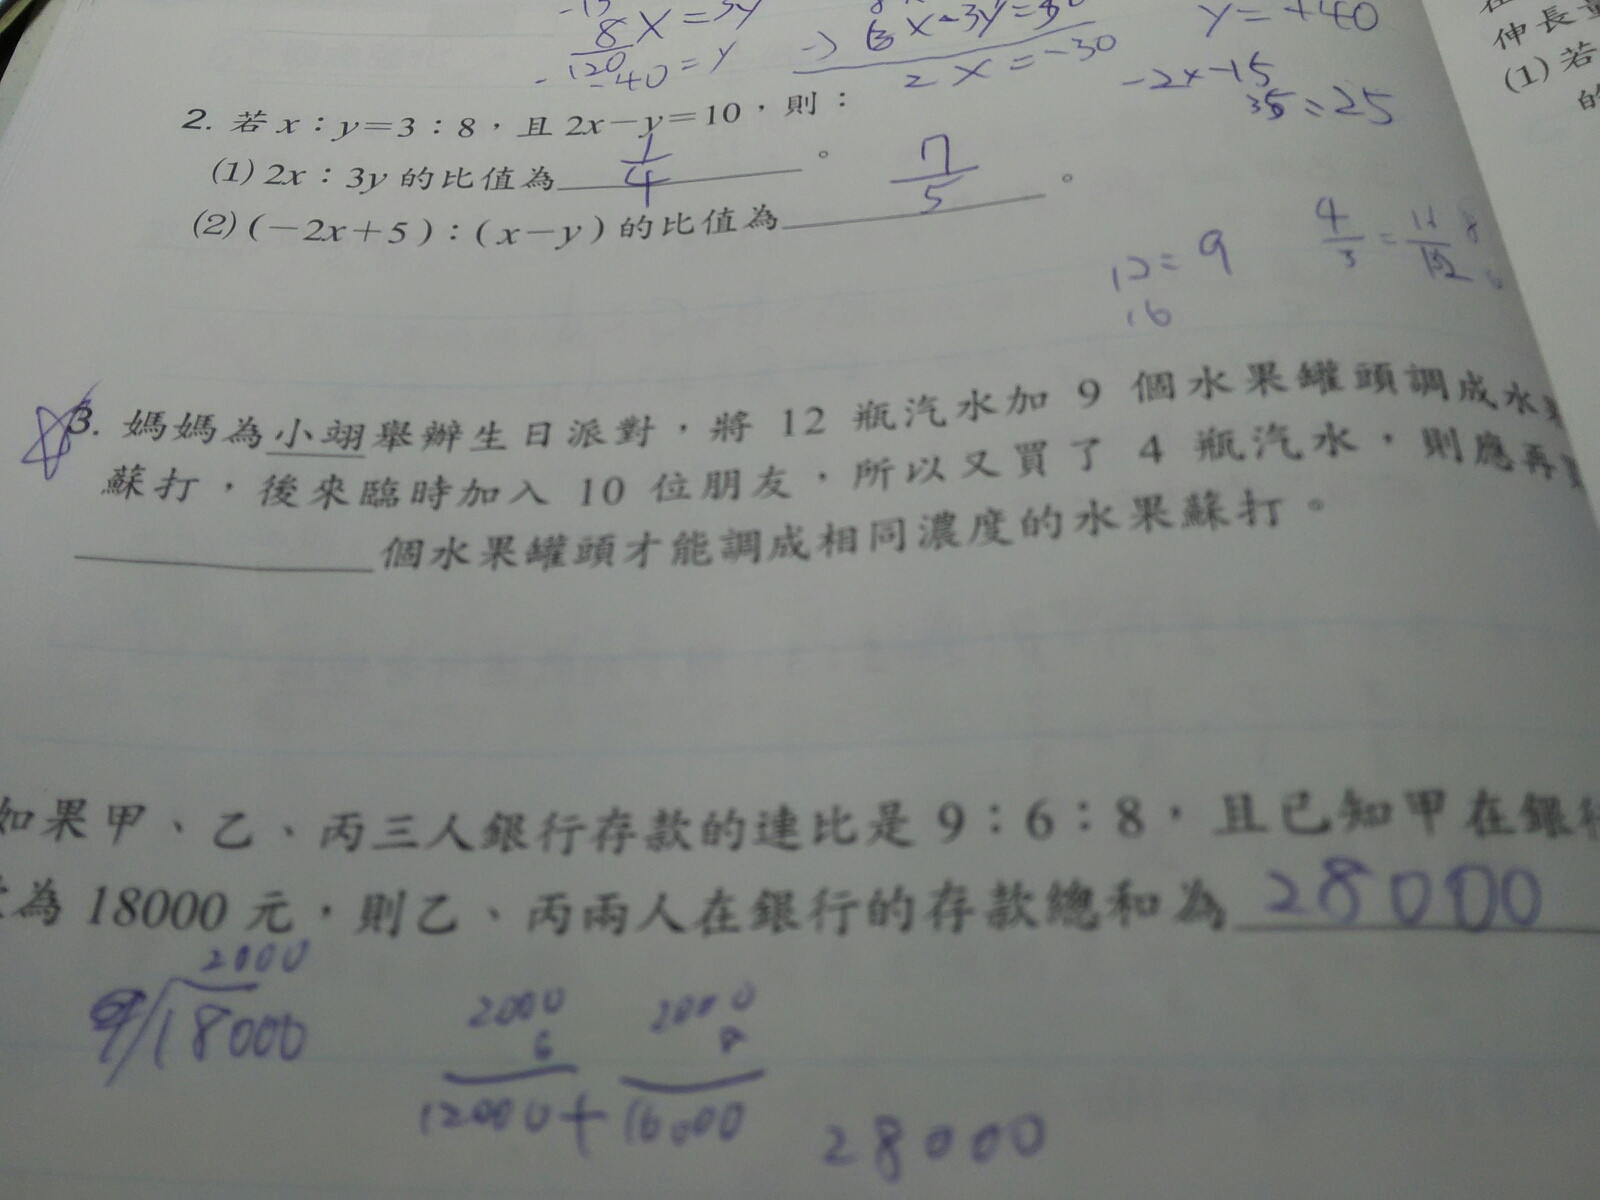 8x=3y
-120
-40=y
-) 6x-3y=30
2x=-30
y=+40
-2x-15
35=25
伸長量
(1)若
的
2. 若 x：y=3：8，且 2x-y=10，則：
(1) 2x：3y 的比值為 1/4 。
(2) (-2x+5)：(x-y) 的比值為 7/5 。
12=9
16
4/3
3. 媽媽為小翊舉辦生日派對，將 12 瓶汽水加 9 個水果罐頭調成水
蘇打，後來臨時加入 10 位朋友，所以又買了 4 瓶汽水，則應再
個水果罐頭才能調成相同濃度的水果蘇打。
如果甲、乙、丙三人銀行存款的連比是 9：6：8，且已知甲在銀行
為 18000 元，則乙、丙兩人在銀行的存款總和為 28000
2000
9/18000
2000 2000
6 8
12000+16000
28000